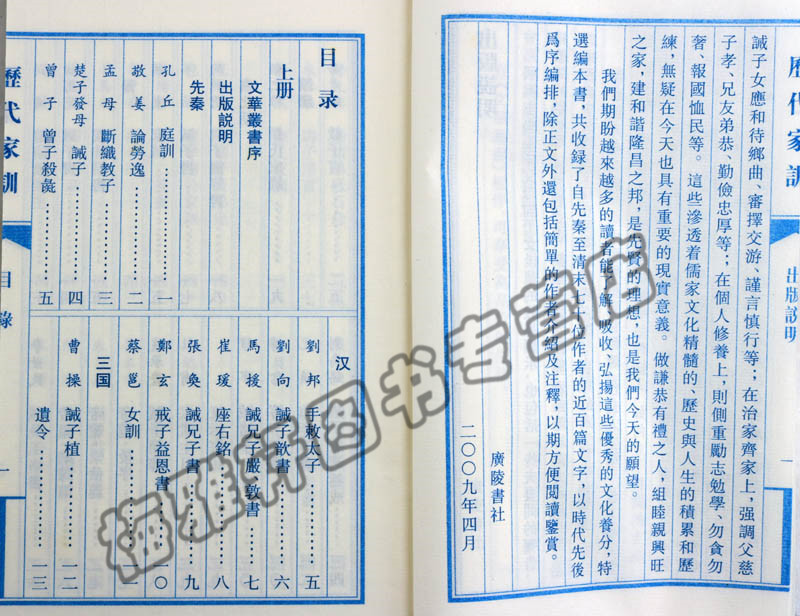 歷代家訓
出版説明
一
誡子女應和待鄉曲、審擇交游、謹言慎行等；在治家齊家上，强調父慈
子孝、兄友弟恭、勤儉忠厚等；在個人修養上，則側重勵志勉學、勿貪勿
奢、報國恤民等。這些滲透着儒家文化精髓的、歷史與人生的積累和歷
練，無疑在今天也具有重要的現實意義。做謙恭有禮之人，組睦親興旺
之家，建和諧隆昌之邦，是先賢的理想，也是我們今天的願望。
我們期盼越來越多的讀者能了解、吸收、弘揚這些優秀的文化養分，特
選編本書，共收録了自先秦至清末七十位作者的近百篇文字，以時代先後
爲序編排，除正文外還包括簡單的作者介紹及注釋，以期方便閲讀鑒賞。
廣陵書社
二〇〇九年四月
目录
上册
文華叢書序
出版説明
先秦
孔丘 庭訓………一
敬姜 論勞逸………二
孟母 斷織教子………三
楚子發母 誡子………四
曾子 曾子殺彘………五
汉
劉邦 手敕太子………五
劉向 誡子歆書………六
馬援 誡兄子嚴敦書………七
崔瑗 座右銘………八
張奐 誡兄子書………九
鄭玄 戒子益恩書………一〇
蔡邕 女訓………一一
三国
曹操 誡子植………一二
遺令………一三
歷代家訓
目錄
一
梅雅轩图书专营店